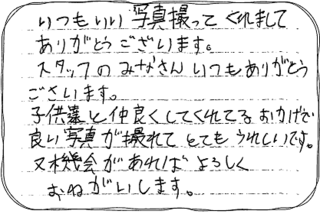 いつもいい写真撮ってくれまして
ありがとうございます。
スタッフのみなさんいつもありがとう
ございます。
子供達と仲良くしてくれてるおかげで
良い写真が撮れてとてもうれしいです。
又機会があればよろしく
おねがいします。